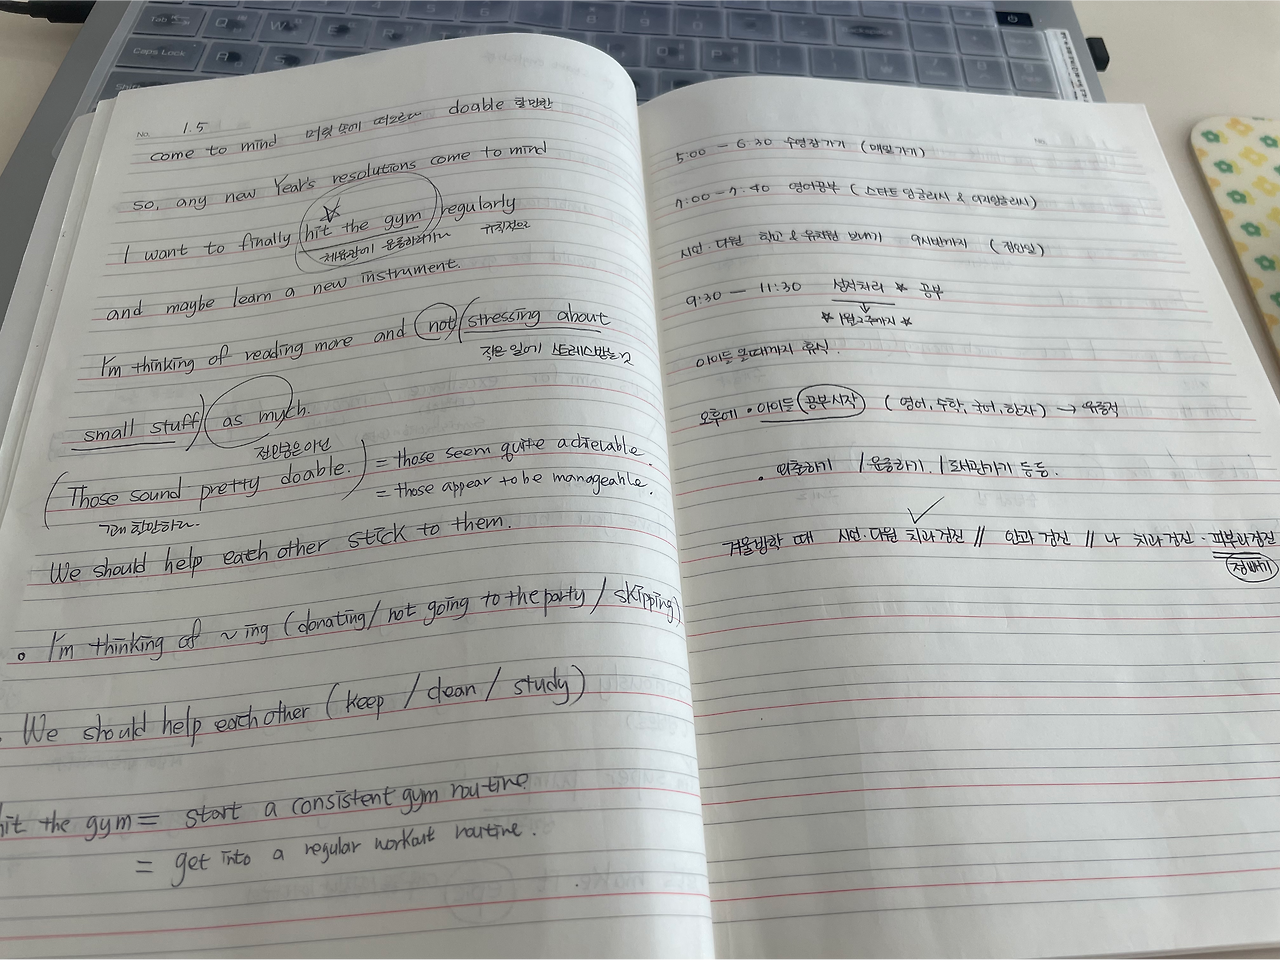 No. 1.5
come to mind 머릿속에 떠오르다 doable 할만한
so, any new Year's resolutions come to mind
I want to finally hit the gym regularly
체육관에 운동하러가다 규칙적으로
and maybe learn a new instrument.
I'm thinking of reading more and not stressing about
작은 일에 스트레스받는 것
small stuff as much.
전만큼은 아닌
Those sound pretty doable. = those seem quite achievable.
= those appear to be manageable.
꽤 할만하다.
We should help each other stick to them.
I'm thinking of ~ ing (donating / not going to the party / skipping)
We should help each other (keep / clean / study)
hit the gym = start a consistent gym routine.
= get into a regular workout routine.
No.
5:00 - 6:30 수영장가기 (매일가기)
7:00 - 7:40 영어공부 (스타트 잉글리시 & 이지잉글리시)
시언·다원 학교 & 유치원 보내기 9시반까지 (평일)
9:30 - 11:30 성적처리 ★ 공부
★ 1월 2주까지 ★
아이들 올때까지 휴식.
오후에 · 아이들 공부시작 (영어, 수학, 국어, 한자) →
· 외출하기 / 운동하기. / 도서관가기 등등.
겨울방학 때 시언·다원 치과검진 // 안과 검진 // 나 치과 검진 · 피부과검진
점빼기